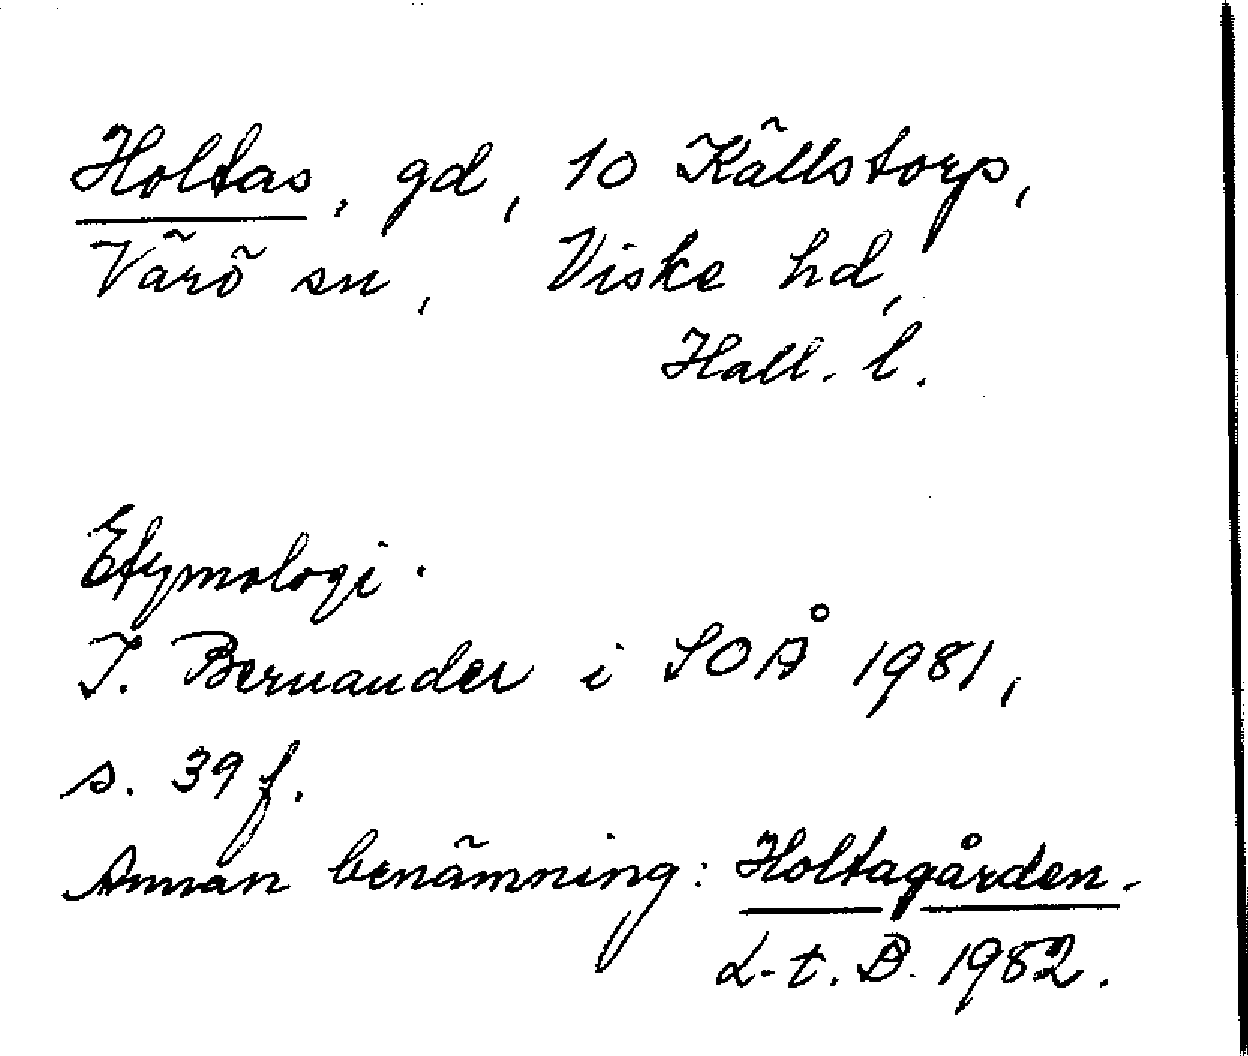 Holtas, gd, 10 Källstorp,
Värö sn, Viske hd,
Hall. l.
Etymologi.
I. Bernander i SOÅ 1981,
s. 39 f.
Annan benämning: Holtagården.
L-t. D. 1982.